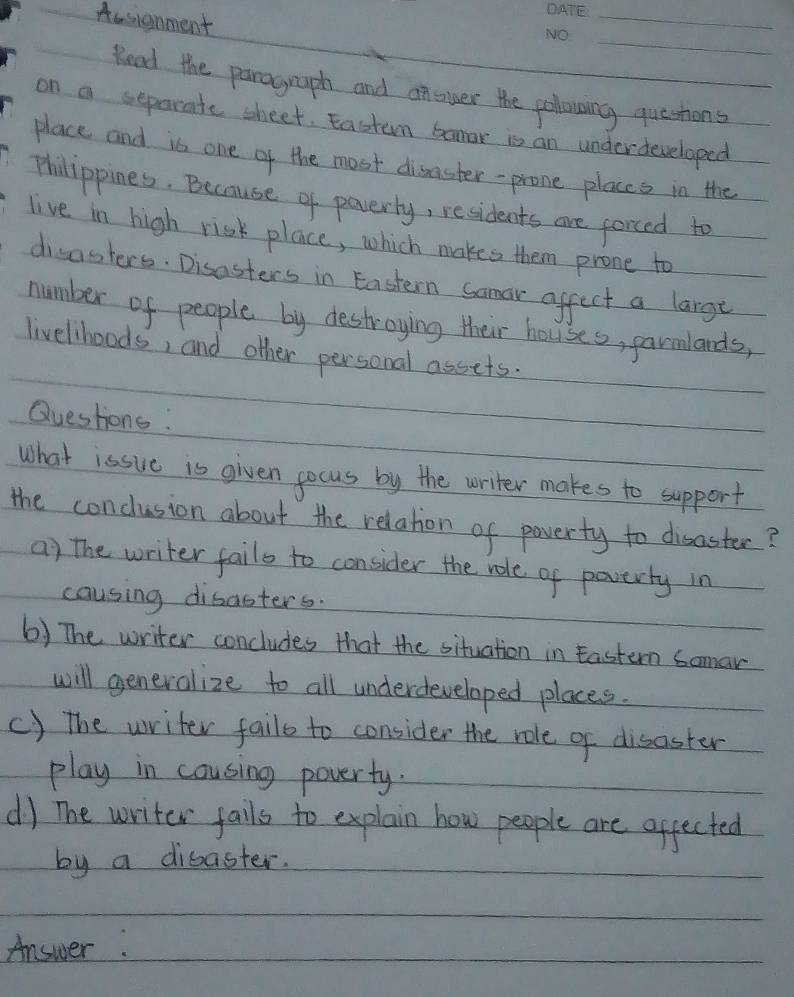 DATE
NO
Assignment
Read the paragraph and answer the following questions
on a separate sheet. Eastern Samar is an underdeveloped
place and is one of the most disaster-prone places in the
Philippines. Because of poverty, residents are forced to
live in high risk place, which makes them prone to
disasters. Disasters in Eastern Samar affect a large
number of people by destroying their houses, farmlands,
livelihoods, and other personal assets.
Questions:
What issue is given focus by the writer makes to support
the conclusion about the relation of poverty to disaster?
a) The writer fails to consider the role of poverty in
causing disasters.
b) The writer concludes that the situation in Eastern Samar
will generalize to all underdeveloped places.
c) The writer fails to consider the role of disaster
play in causing poverty.
d) The writer fails to explain how people are affected
by a disaster.
Answer: